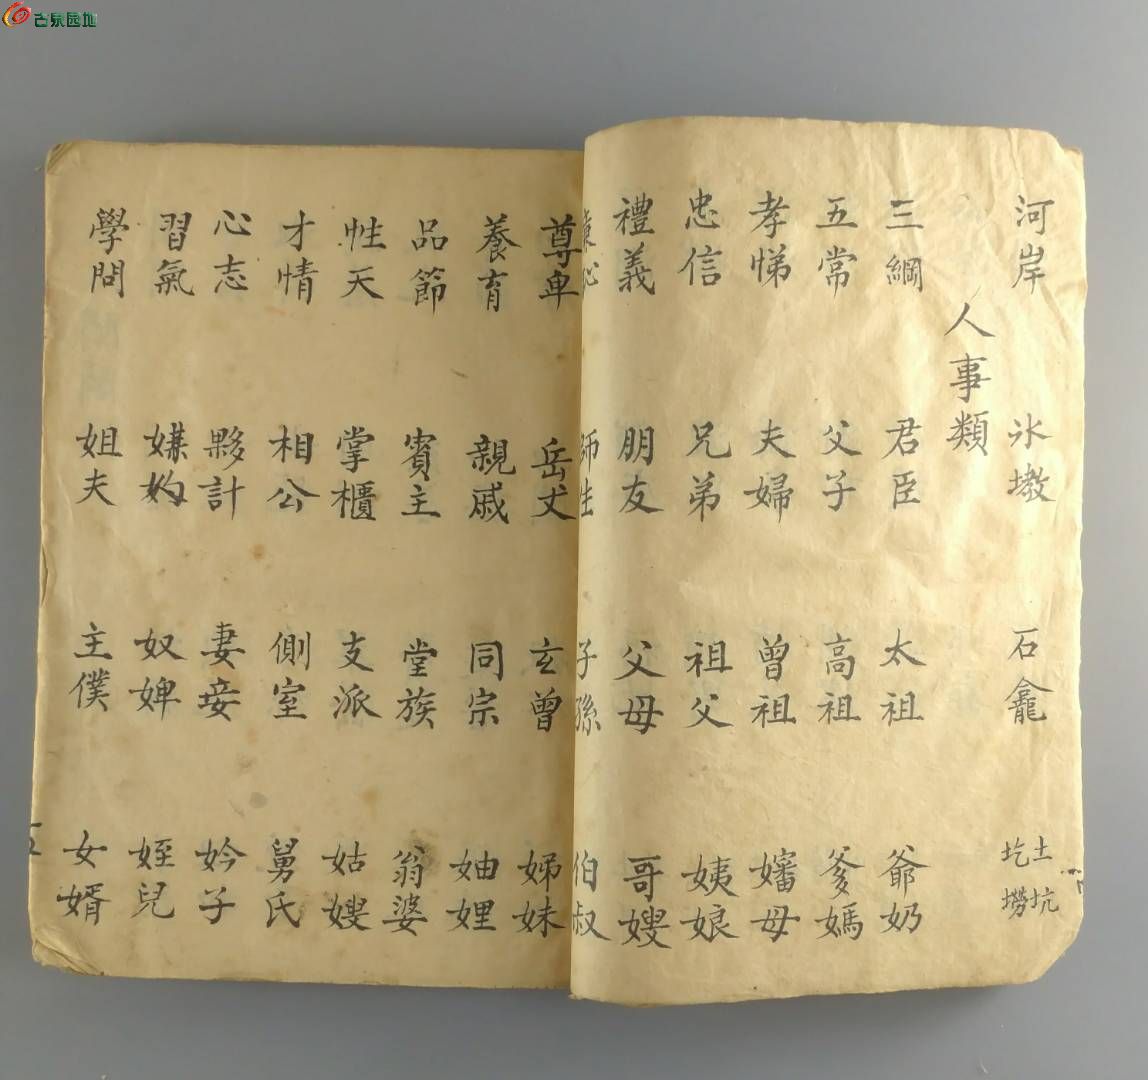 古泉园地
河岸 石龕 土坑 圪撈
人事類
三綱 君臣 太祖 爺奶
五常 父子 高祖 爹媽
孝悌 夫婦 曾祖 嬸母
忠信 兄弟 祖父 姨娘
禮義 朋友 父母 哥嫂
師生 子孫 伯叔
尊卑 岳丈 玄曾 娣妹
養育 親戚 同宗 妯娌
品節 賓主 堂族 翁婆
性天 掌櫃 支派 姑嫂
才情 相公 側室 舅氏
心志 夥計 妻妾 妗子
習氣 媒妁 奴婢 姪兒
學問 姐夫 主僕 女婿